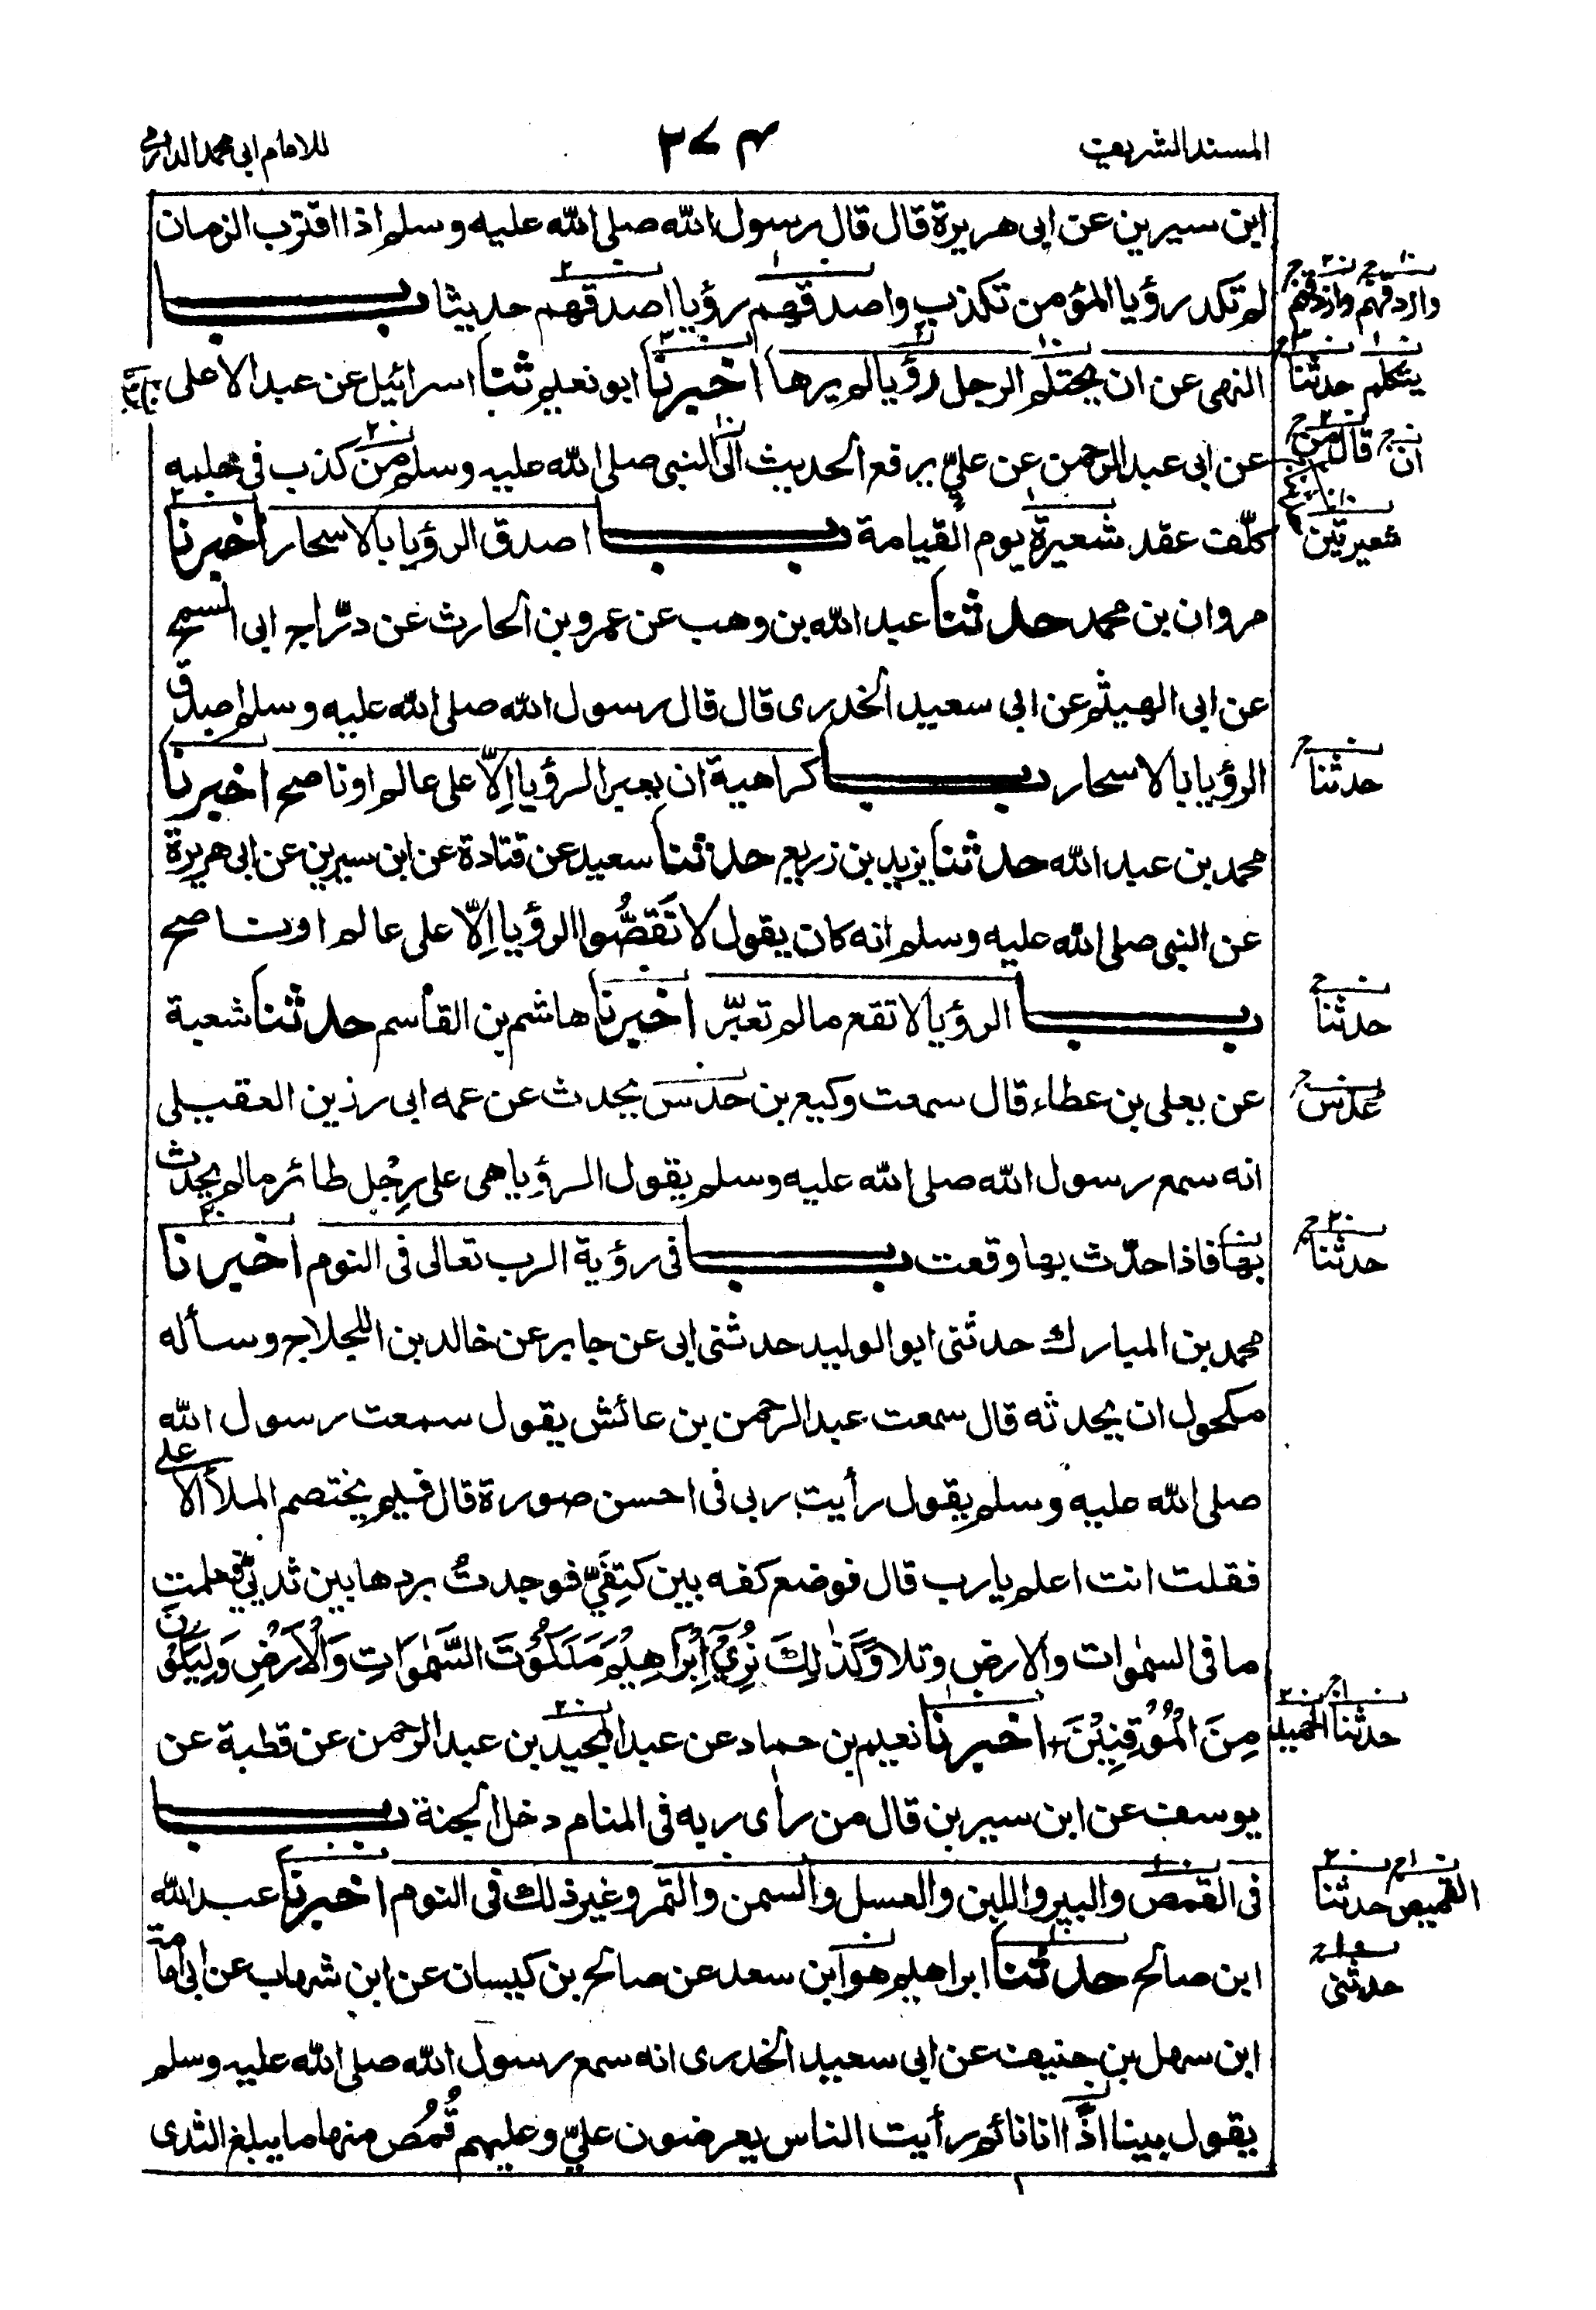 المسند الشريف
٣٧٤
للامام ابی محمد الدارمی
ابن سيرين عن ابی هريرة قال قال رسول الله صلی الله عليه وسلم اذا اقترب الزمان
لم تكد رؤيا المؤمن تكذب واصدقهم رؤيا اصدقهم حديثا بــاب
النهی عن ان يحتلم الرجل رؤيا لم يرها اخبرنا ابو نعيم ثنا اسرائيل عن عبد الاعلی
عن ابی عبد الرحمن عن علیّ يرفع الحديث الی النبی صلی الله عليه وسلم من كذب فی حلمه
كلّف عقد شعيرة يوم القيامة بــاب اصدق الرؤيا بالاسحار اخبرنا
مروان بن محمد حدثنا عبد الله بن وهب عن عمرو بن الحارث عن درّاج ابی السمح
عن ابی الهيثم عن ابی سعيد الخدری قال قال رسول الله صلی الله عليه وسلم اصدق
الرؤيا بالاسحار بــاب كراهية ان يعبر الرؤيا اِلّا علی عالم او ناصح اخبرنا
محمد بن عبد الله حدثنا يزيد بن زريع حدثنا سعيد عن قتادة عن ابن سيرين عن ابی هريرة
عن النبی صلی الله عليه وسلم انه كان يقول لا تَقُصُّوا الرؤيا اِلّا علی عالم او ناصح
بــاب الرؤيا لا تقع ما لم تعبّر اخبرنا هاشم بن القاسم حدثنا شعبة
عن يعلی بن عطاء قال سمعت وكيع بن حدس يحدث عن عمه ابی رزين العقيلی
انه سمع رسول الله صلی الله عليه وسلم يقول الرؤيا هی علی رِجْل طائر ما لم يحدث
بها فاذا حدّث بها وقعت بــاب فی رؤية الرب تعالی فی النوم اخبرنا
محمد بن المبارك حدثنی ابو الوليد حدثنی ابی عن جابر عن خالد بن اللجلاج وسأله
مكحول ان يحدثه قال سمعت عبد الرحمن بن عائش يقول سمعت رسول الله
صلی الله عليه وسلم يقول رأيت ربی فی احسن صورة قال فيم يختصم الملأ الاعلی
فقلت انت اعلم يا رب قال فوضع كفه بين كتِفَیّ فوجدتُ بردها بين ثديیّ فعلمت
ما فی السمٰوات والارض وتلا وَكَذٰلِكَ نُرِیْ اِبْرَاهِيْمَ مَلَكُوْتَ السَّمٰوَاتِ وَالْاَرْضِ وَلِيَكُوْنَ
مِنَ الْمُوْقِنِيْنَ اخبرنا نعيم بن حماد عن عبد المجيد بن عبد الرحمن عن قطبة عن
يوسف عن ابن سيرين قال من رأی ربه فی المنام دخل الجنة بــاب
فی القمص والبير واللبن والعسل والسمن والتمر وغير ذلك فی النوم اخبرنا عبد الله
ابن صالح حدثنا ابراهيم هو ابن سعد عن صالح بن كيسان عن ابن شهاب عن ابی امامة
ابن سهل بن حنيف عن ابی سعيد الخدری انه سمع رسول الله صلی الله عليه وسلم
يقول بينا اذا انا نائم رأيت الناس يعرضون علیّ وعليهم قُمُص منها ما يبلغ الثدی
يتكلم حدثنا
ان قال من
شعيرتين
حدثنا
حدثنا
عدس
حدثنا
حدثنا الحميد
القميص حدثنا
حدثنی